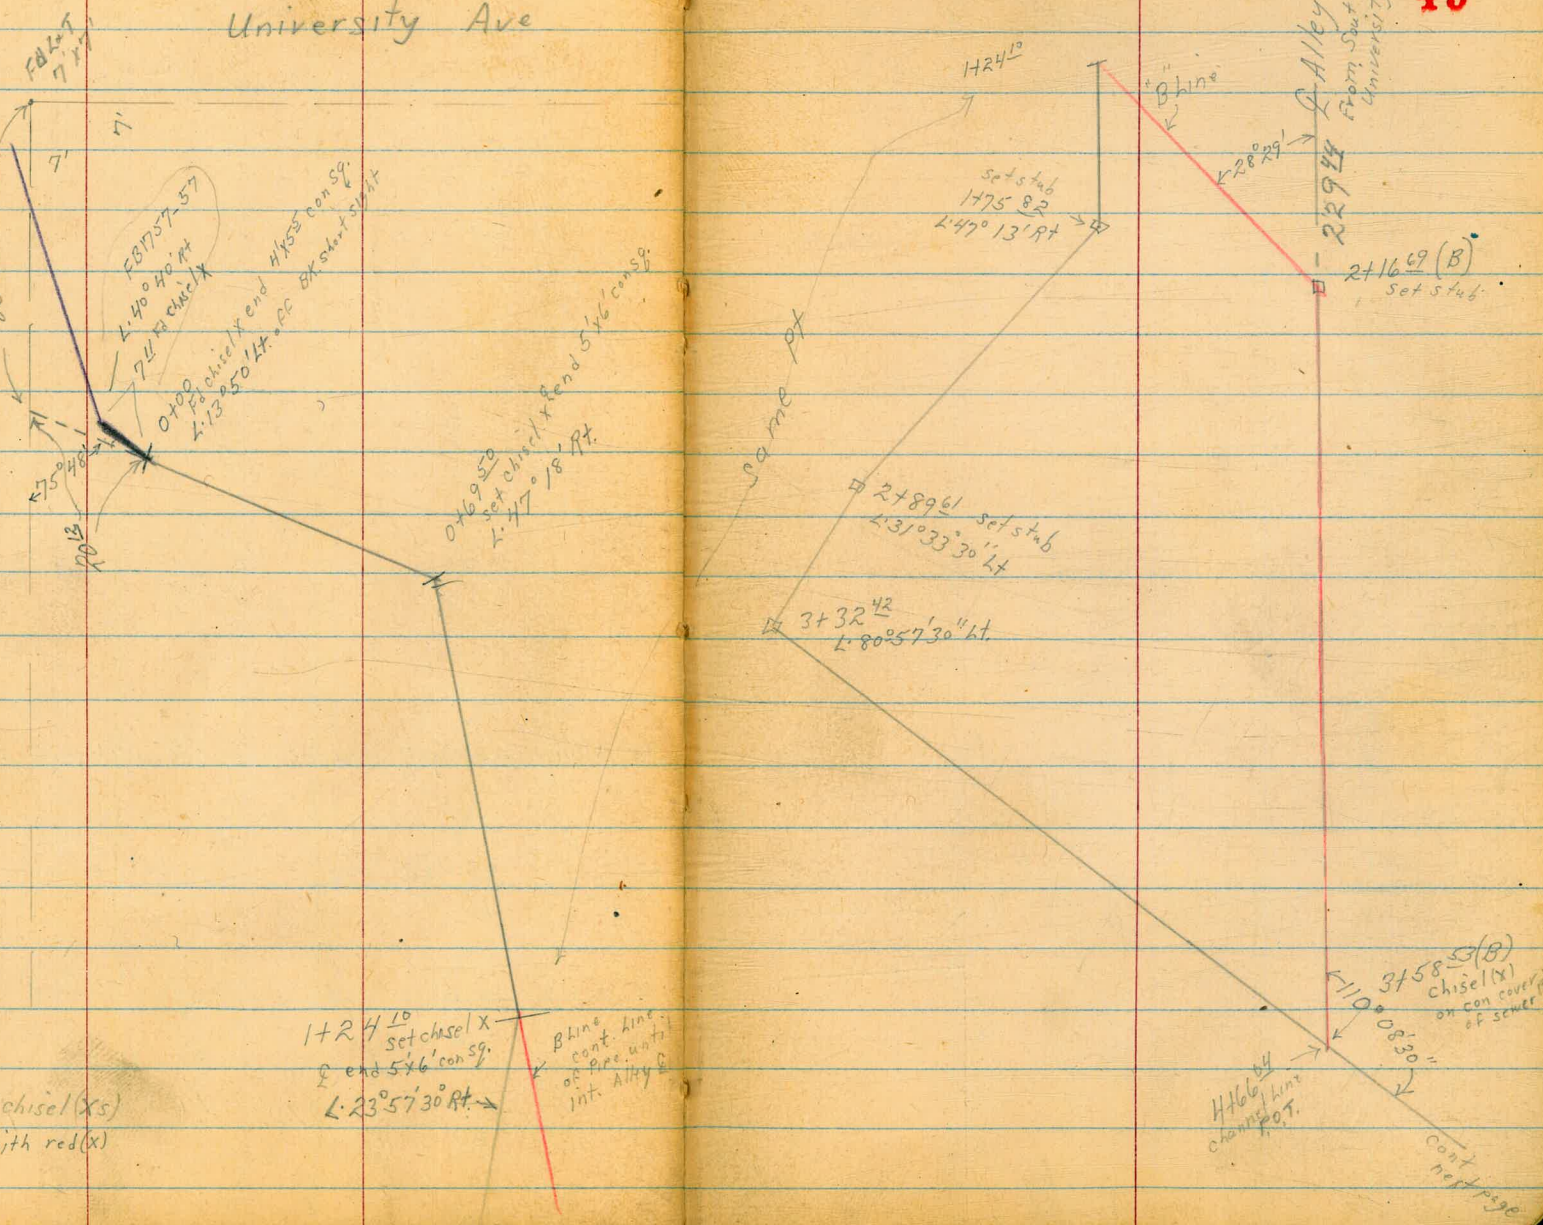 University Ave
Fd L+T
7' x 7'
7'
7'
FB1757-57
L.40°40' Rt
7 11 Fd chisel x
0+00
Fd chisel x end 4'x55 con sq.
L.13°50' Lt. off BK. short sight
75° 48'
20 13
0+69 50
set chisel x ℄ end 5'x6' con sq.
L.47° 18' Rt.
1+24 10
set chisel x
℄ end 5'x6' con sq.
L.23°57'30" Rt.
B Line
cont. Line
of Pipe until
int. Alley ℄
chisel (xs)
ith red (x)
1+24 10
same pt
"B" Line
28°29'
229 44
℄ Alley
From Sout
Universit
set stub
1+75 82
L.47° 13' Rt
2+16 69 (B)
set stub
2+89 61 set stub
L.31°33'30" Lt
3+32 42
L.80°57'30" Lt.
3+58 53 (B)
chisel (x)
on con cover
of sewer
110°08'30"
4+66 04
channel Line
P.O.T.
cont
next page